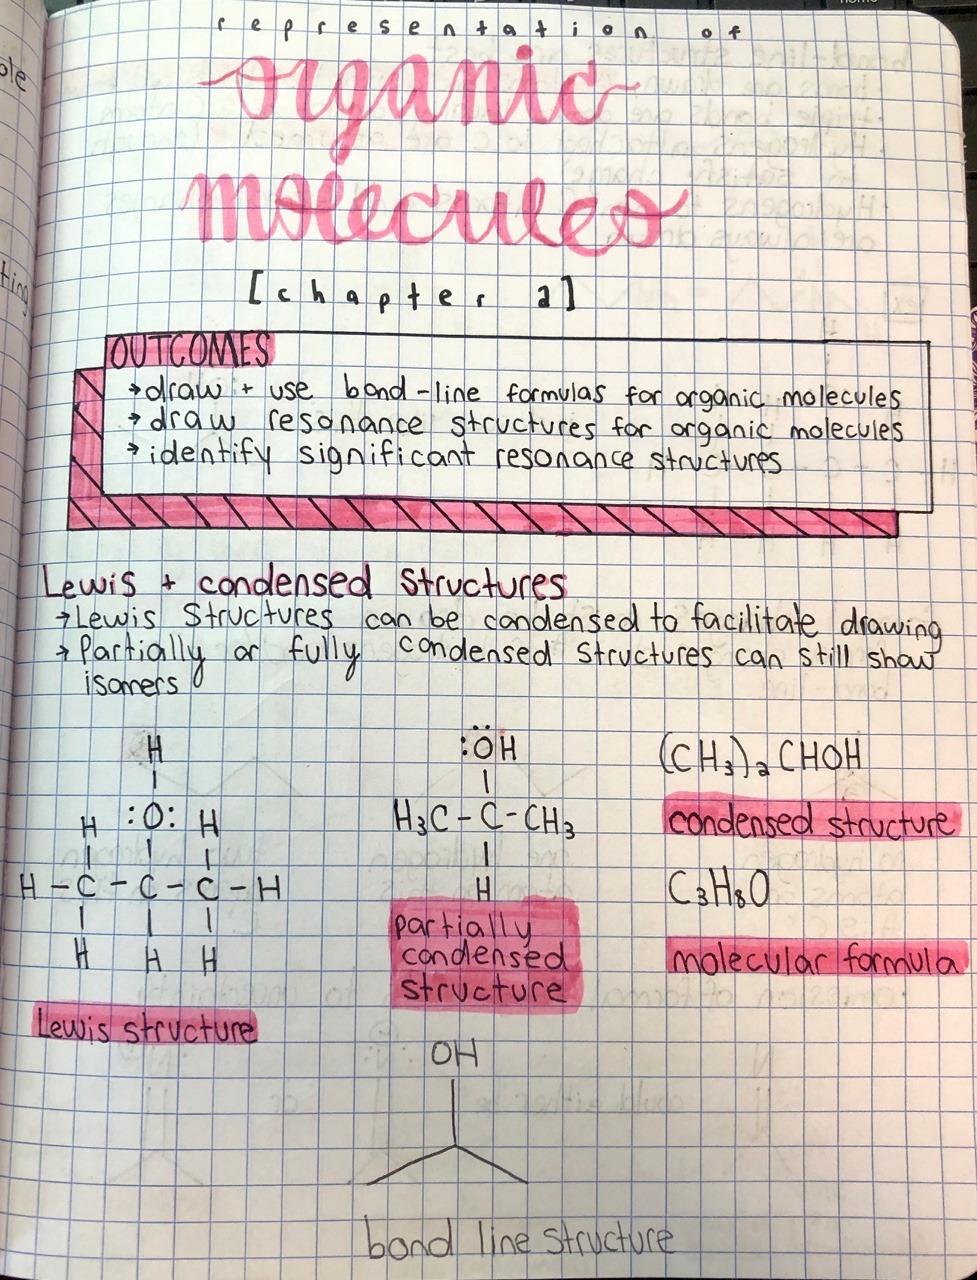 representation of
organic
molecules
[chapter 2]
OUTCOMES
→draw + use bond-line formulas for organic molecules
→draw resonance structures for organic molecules
→identify significant resonance structures
Lewis + condensed Structures
→Lewis Structures can be condensed to facilitate drawing
→Partially or fully condensed Structures can still show
isomers
H
H :O: H
H-C-C-C-H
H H H
Lewis structure
:ÖH
H₃C-C-CH₃
H
partially
condensed
structure
(CH₃)₂CHOH
condensed structure
C₃H₈O
molecular formula
OH
bond line structure